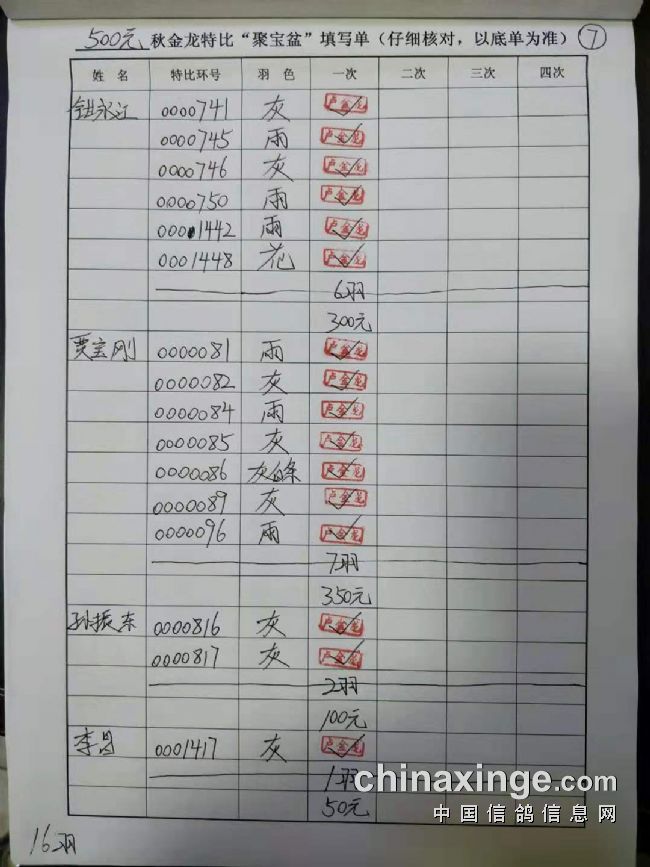 500元 秋金龙特比“聚宝盆”填写单（仔细核对，以底单为准） 7
姓 名 特比环号 羽 色 一次 二次 三次 四次
钽永江 0000741 灰 卢金龙
0000745 雨 卢金龙
0000746 灰 卢金龙
0000750 雨 卢金龙
0001442 雨 卢金龙
0001448 花 卢金龙
6羽
300元
贾宝刚 0000081 雨 卢金龙
0000082 灰 卢金龙
0000084 雨 卢金龙
0000085 灰 卢金龙
0000086 灰白条 卢金龙
0000089 灰 卢金龙
0000096 雨 卢金龙
7羽
350元
孙振东 0000816 灰 卢金龙
0000817 灰 卢金龙
2羽
100元
李昌 0001417 灰 卢金龙
1羽
50元
16羽
chinaxinge.com
中国信鸽信息网